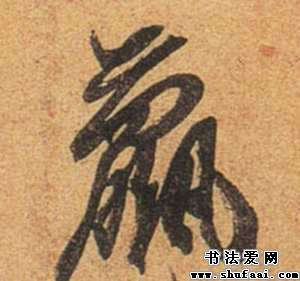 羸
书法爱网
www.shufaai.com